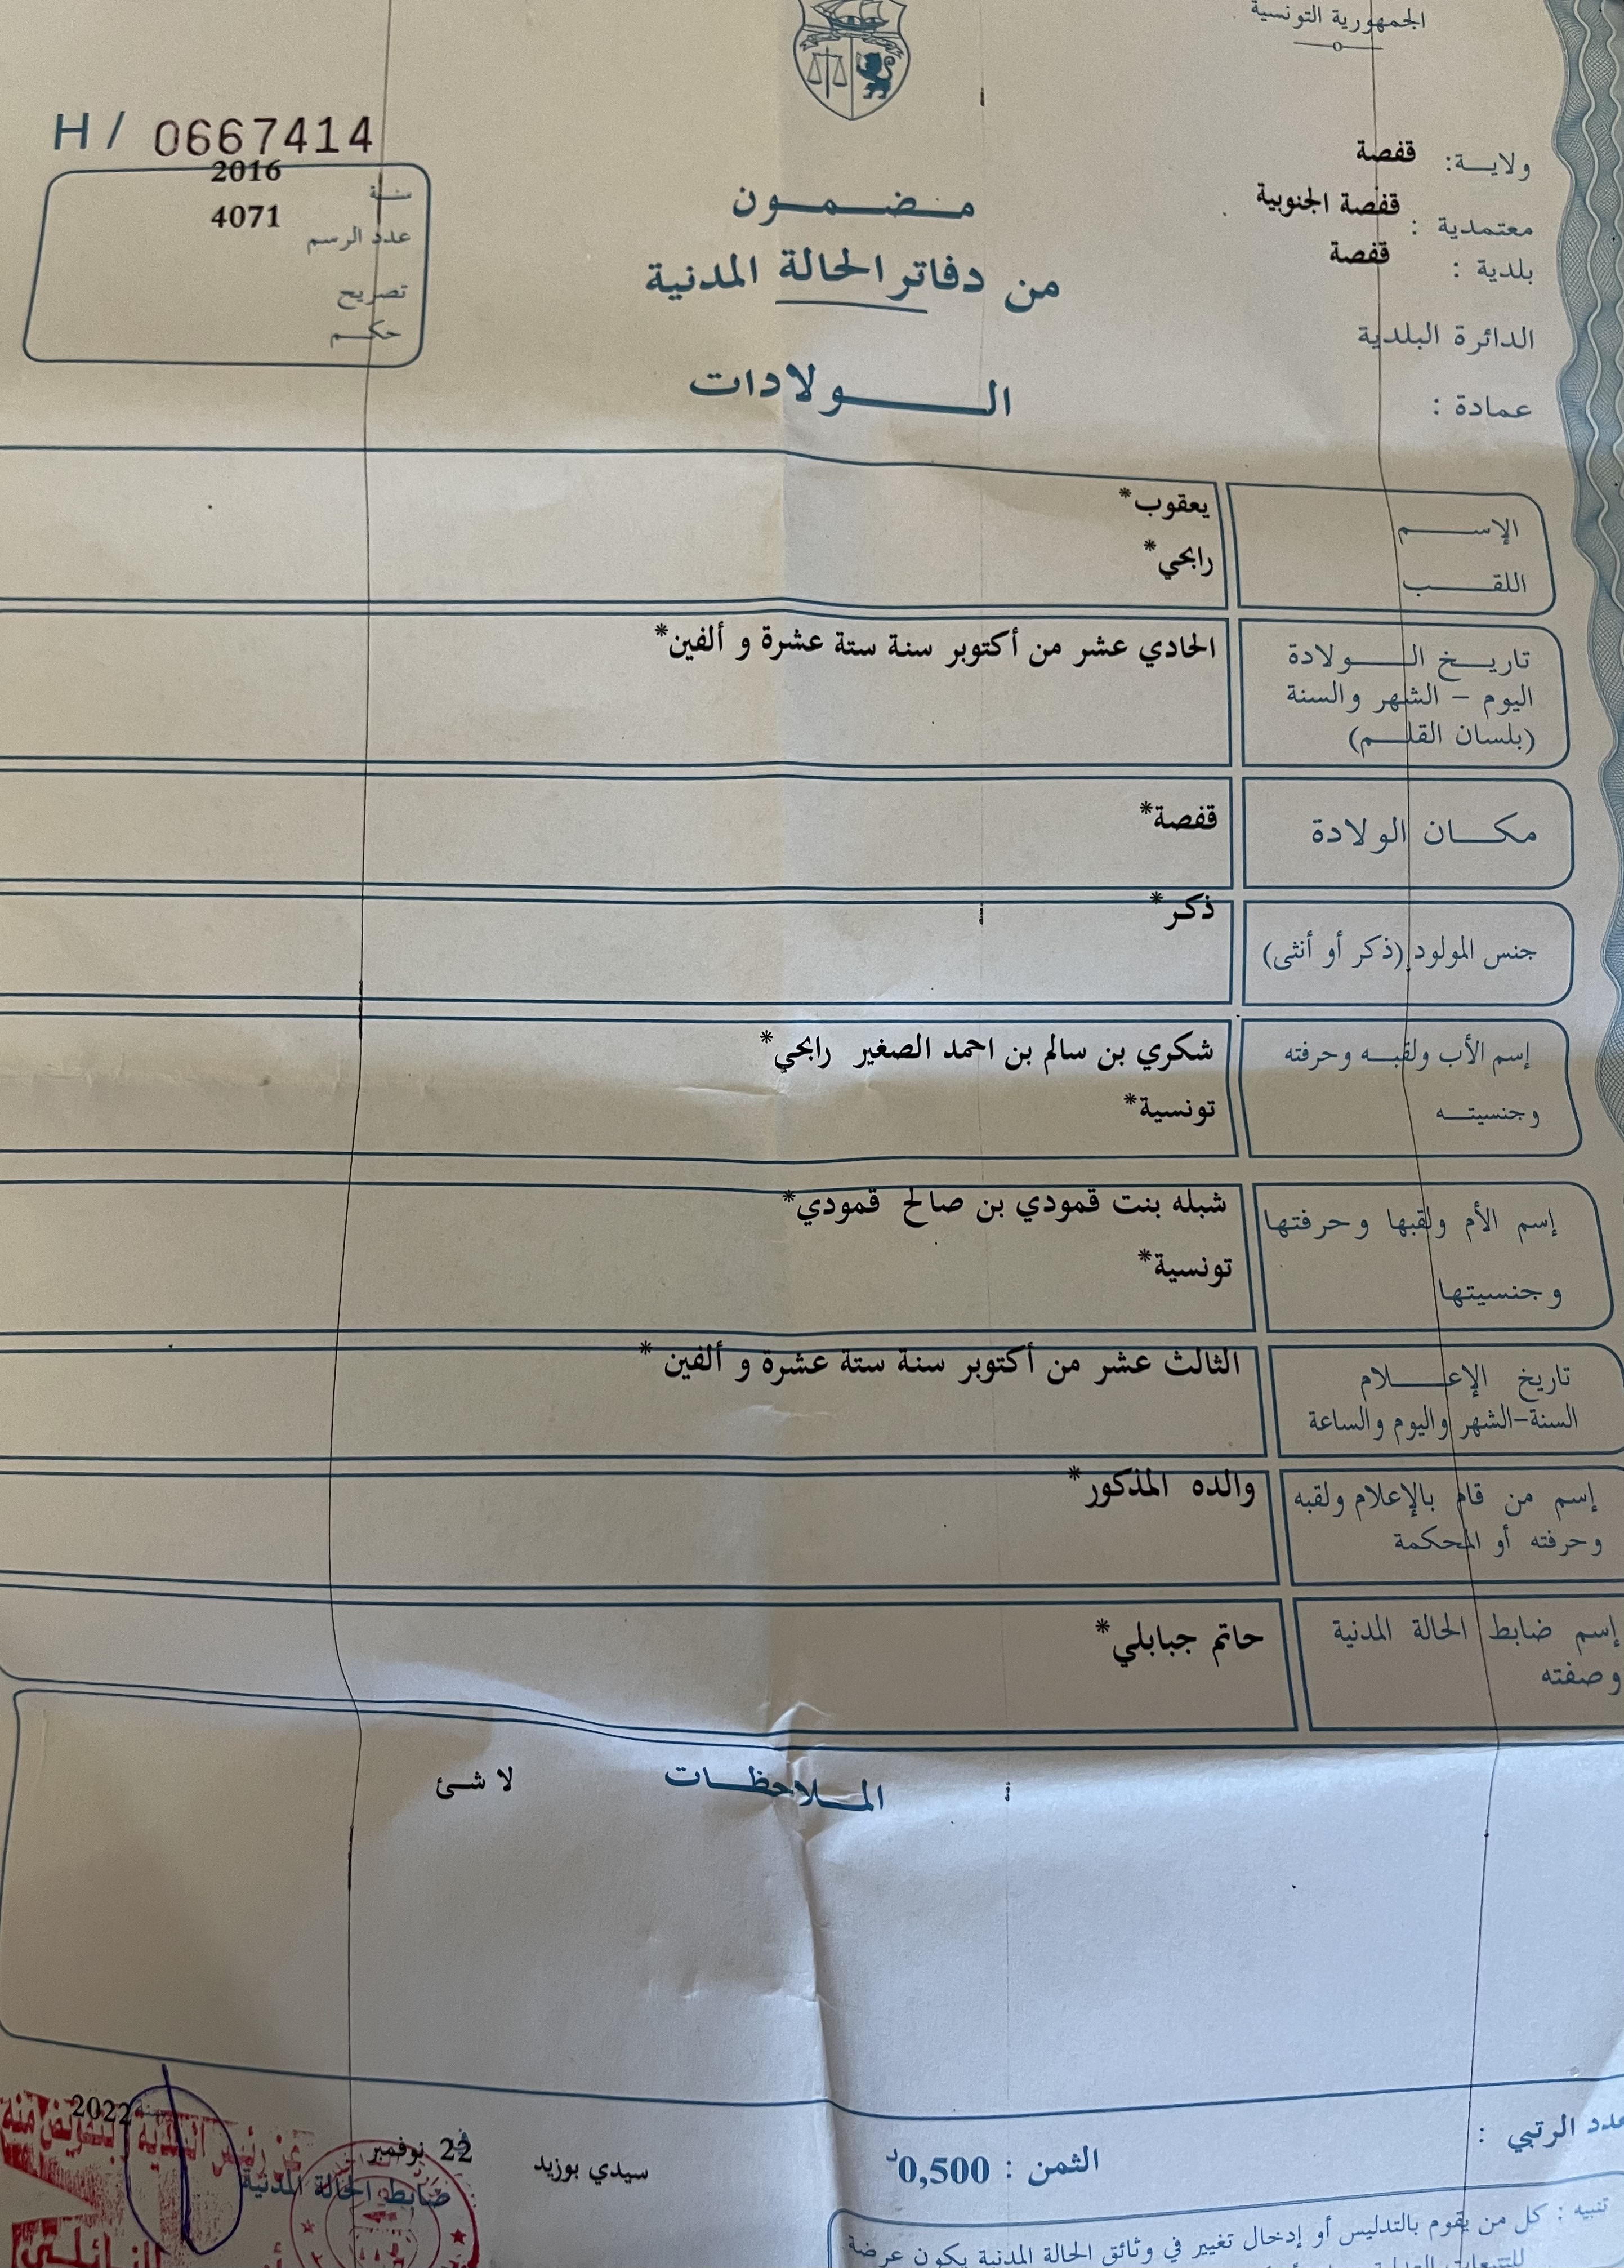 الجمهورية التونسية
H / 0667414
ولاية: قفصة
معتمدية : قفصة الجنوبية
بلدية : قفصة
الدائرة البلدية
عمادة :
سنة 2016
عدد الرسم 4071
تصريح
حكم
مضمون
من دفاتر الحالة المدنية
الولادات
الإسم يعقوب*
اللقب رابحي*
تاريخ الولادة الحادي عشر من أكتوبر سنة ستة عشرة و ألفين*
اليوم – الشهر والسنة
(بلسان القلم)
مكان الولادة قفصة*
جنس المولود (ذكر أو أنثى) ذكر*
إسم الأب ولقبه وحرفته شكري بن سالم بن احمد الصغير رابحي*
وجنسيته تونسية*
إسم الأم ولقبها وحرفتها شبله بنت قمودي بن صالح قمودي*
وجنسيتها تونسية*
تاريخ الإعلام الثالث عشر من أكتوبر سنة ستة عشرة و ألفين *
السنة-الشهر واليوم والساعة
إسم من قام بالإعلام ولقبه والده المذكور*
وحرفته أو المحكمة
إسم ضابط الحالة المدنية حاتم جبابلي*
وصفته
الملاحظات لا شئ
عدد الرتبي :
الثمن : 0,500د
سيدي بوزيد
22 نوفمبر
2022
عن رئيس البلدية بتفويض منه
ضابط الحالة المدنية
تنبيه : كل من يقوم بالتدليس أو إدخال تغيير في وثائق الحالة المدنية يكون عرضة